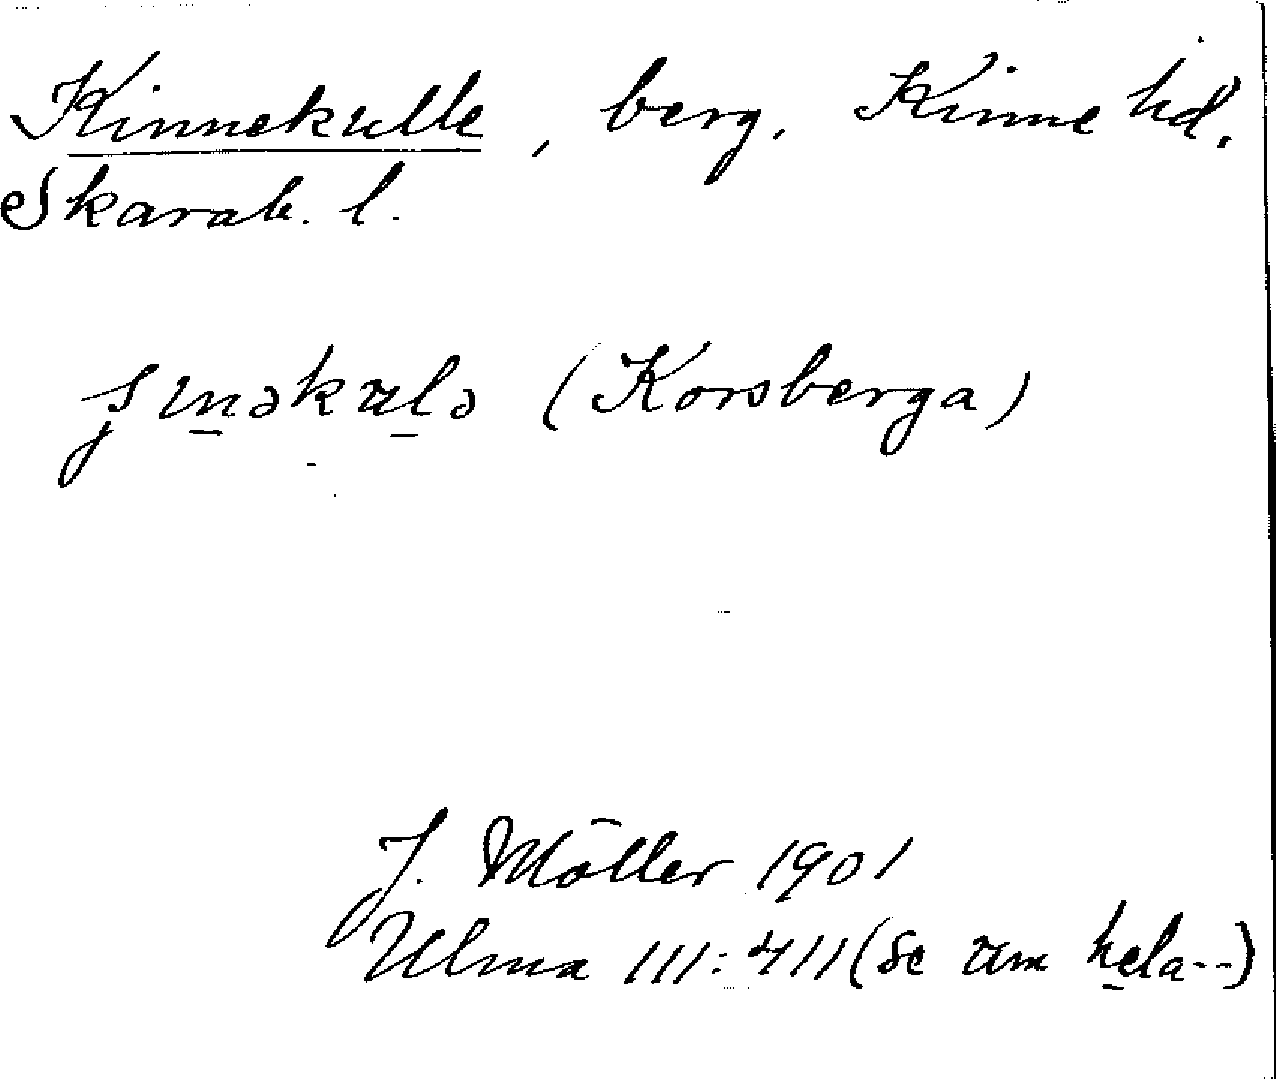 Kinnekulle, berg, Kinne hd.
Skarab. l.
ʃinəkulə (Korsberga)
J. Möller 1901
Ulma 111:411 (se um hela--)